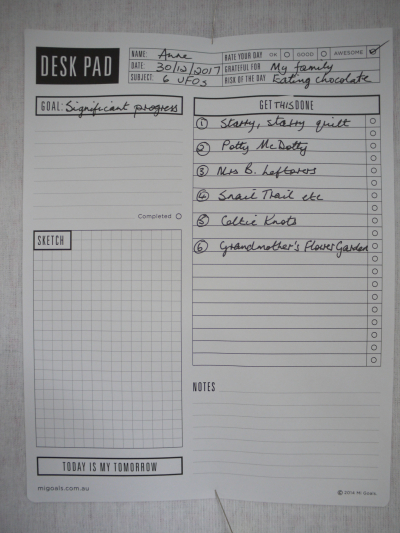 DESK PAD
NAME: Anne
RATE YOUR DAY OK GOOD AWESOME
DATE: 30/12/2017
GRATEFUL FOR My family
SUBJECT 6 UFOs
RISK OF THE DAY Eating chocolate
GOAL: Significant progress
Completed
SKETCH
TODAY IS MY TOMORROW
migoals.com.au
GET THIS DONE
1 Starry, starry quilt
2 Potty McDotty
3 Mrs B. Leftovers
4 Snail Trail etc
5 Celtic Knots
6 Grandmother's Flower Garden
NOTES
© 2016 Mi Goals